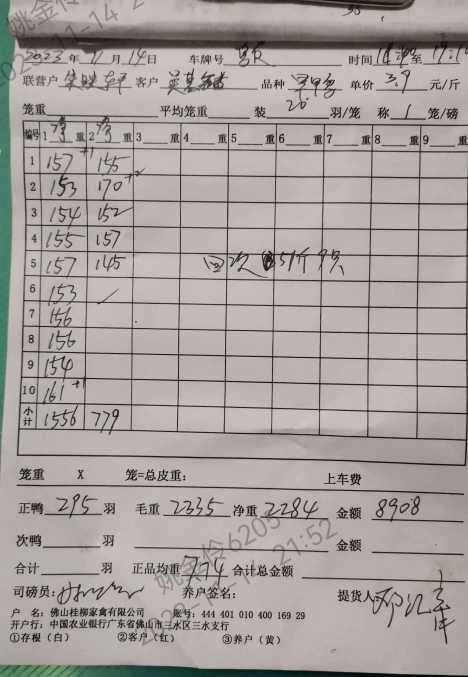 2023年11月14日 车牌号 时间 至
联营户 客户 品种 单价 3.9 元/斤
笼重 平均笼重 装 20 羽/笼 称 1 笼/磅
编号 1 净 重 2 净 重 3 重 4 重 5 重 6 重 7 重 8 重 9 重
1 157 +1 155
2 153 170 +2
3 154 152
4 155 157
5 157 145 回次 51斤 9只
6 153
7 156
8 156
9 154
10 161 +1
小计 1556 779
笼重 X 笼=总皮重: 上车费
正鸭 295 羽 毛重 2335 净重 2284 金额 8908
次鸭 羽 金额
合计 羽 正品均重 7.74 合计总金额
司磅员: 养户签名: 提货人:
户 名: 佛山桂柳家禽有限公司 账号: 444 401 010 400 169 29
开户行: 中国农业银行广东省佛山市三水区三水支行
①存根(白) ②客户(红) ③养户(黄)
姚金伶6205
21:52